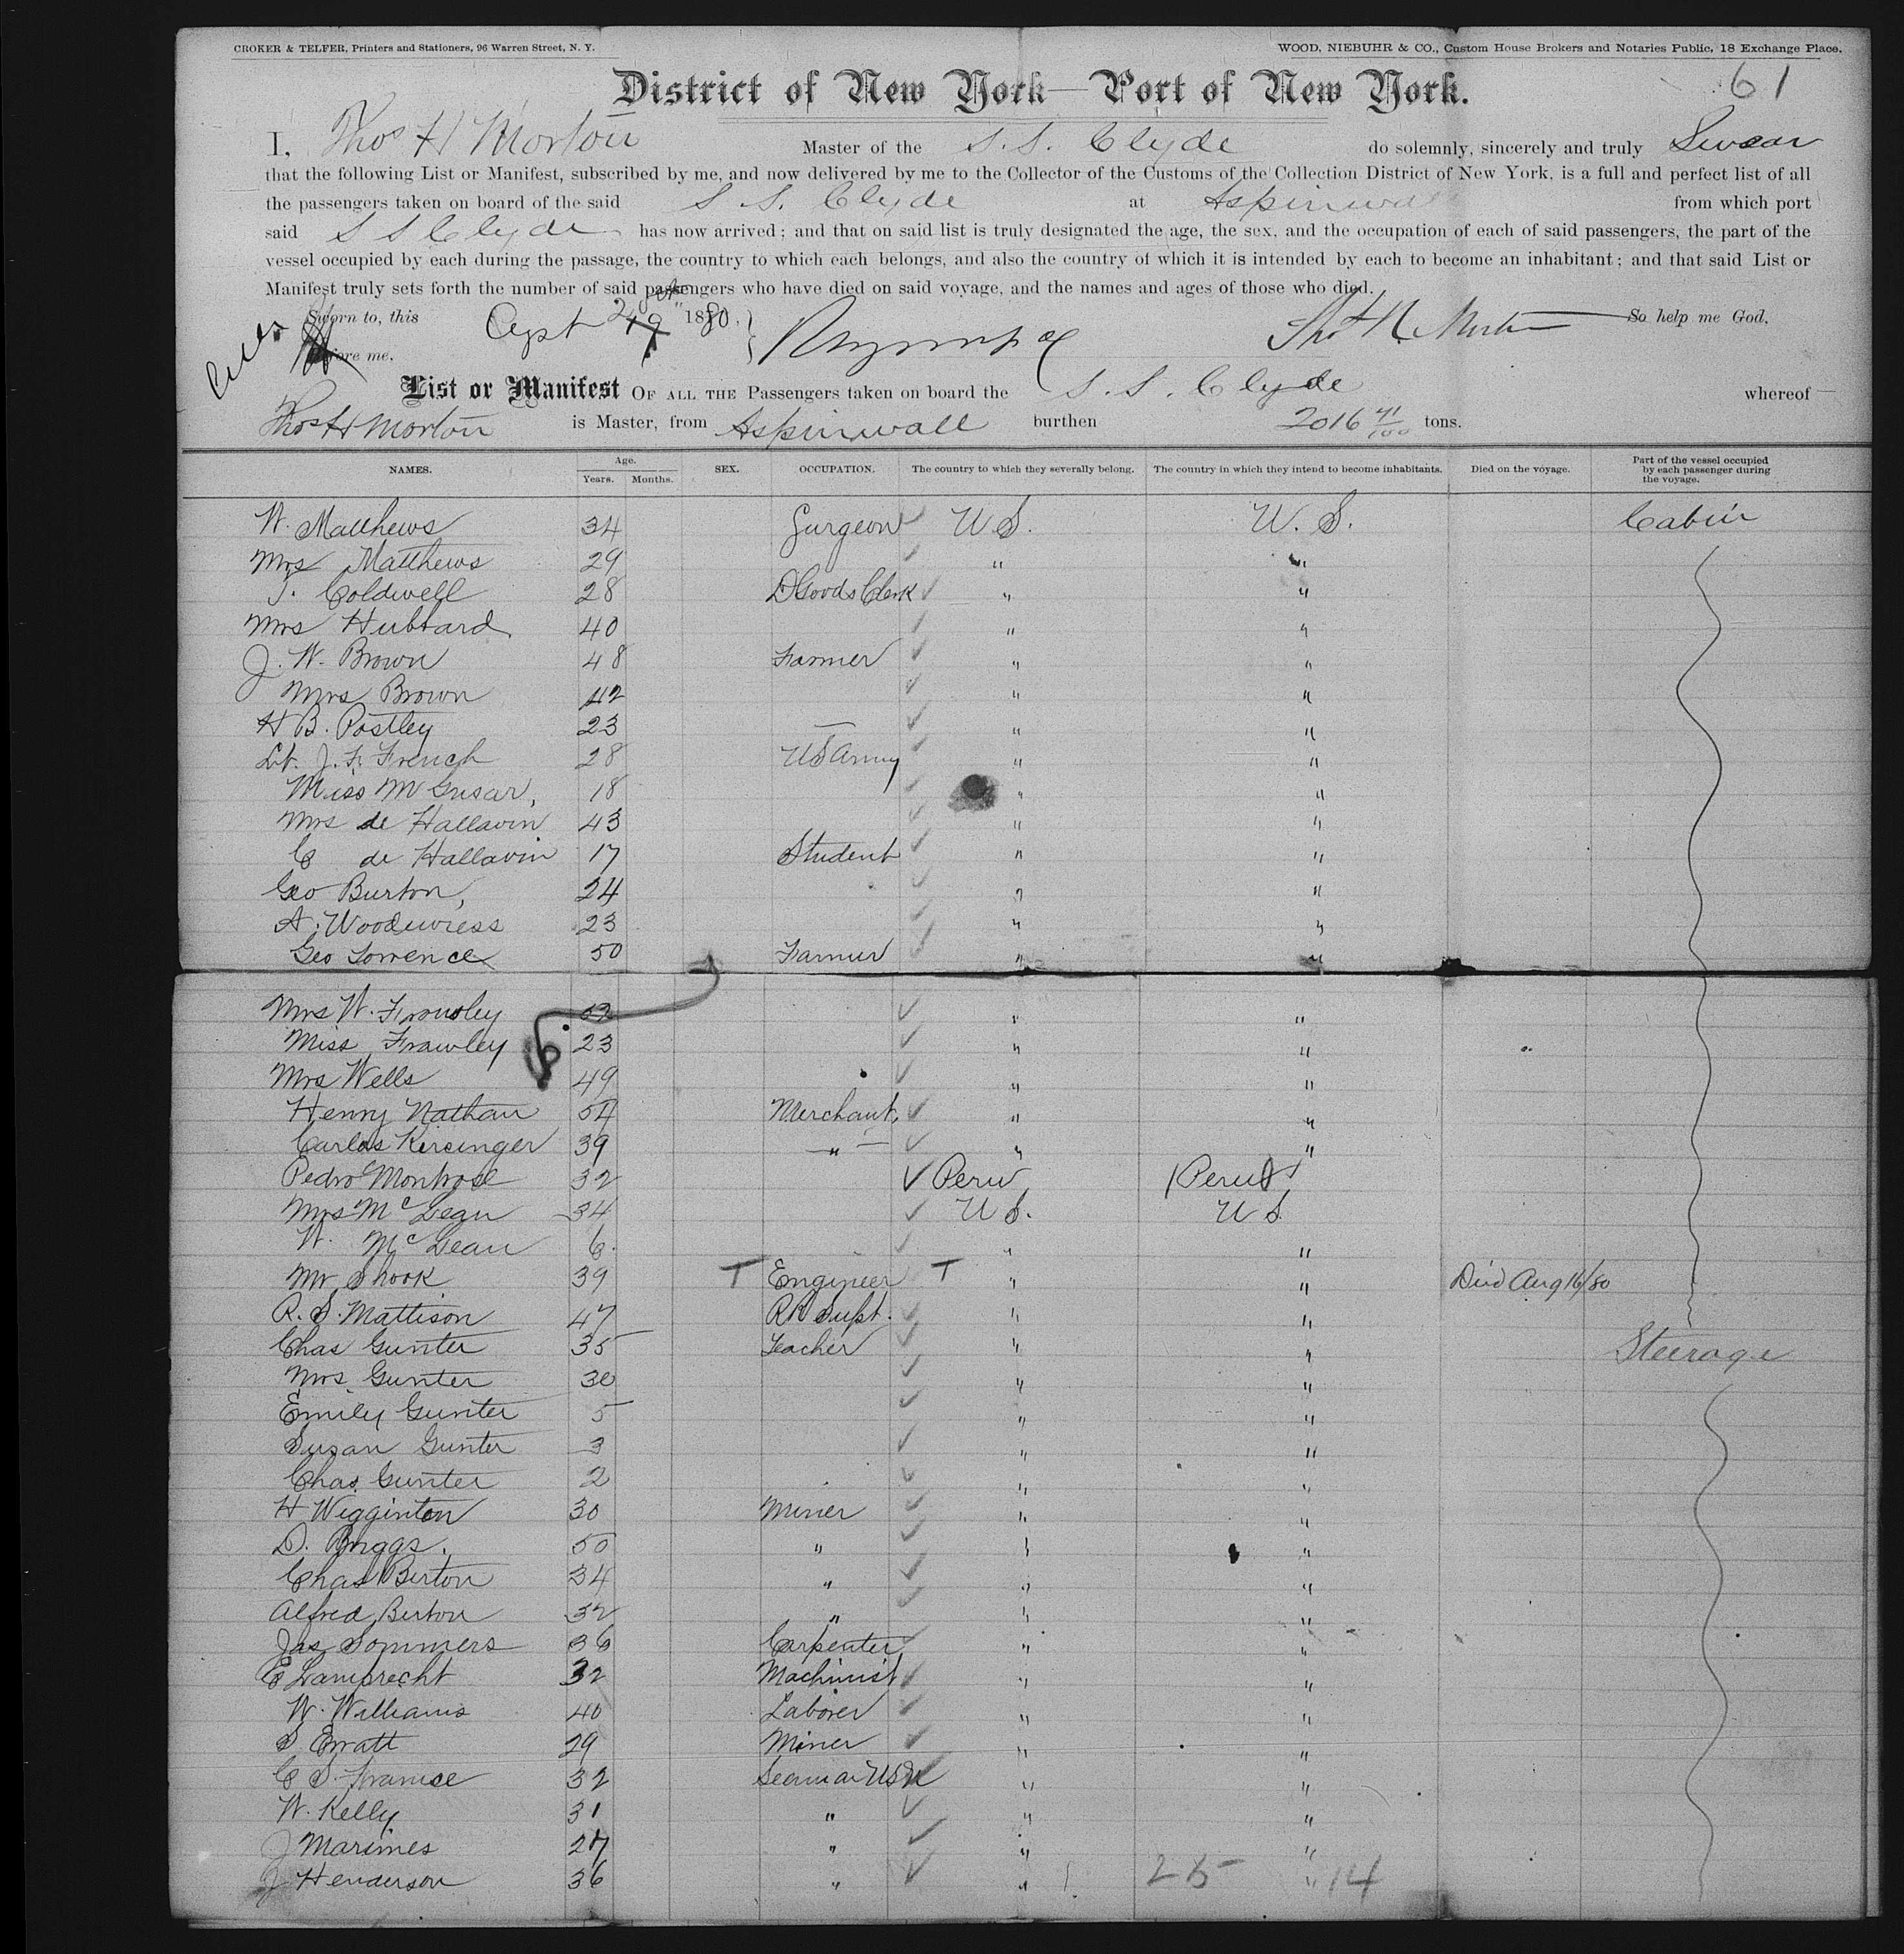 CROKER & TELFER, Printers and Stationers, 96 Warren Street, N. Y. WOOD, NIEBUHR & CO., Custom House Brokers and Notaries Public, 18 Exchange Place.
District of New York—Port of New York. 61
I, Thos H Morton Master of the S.S. Clyde do solemnly, sincerely and truly Swear
that the following List or Manifest, subscribed by me, and now delivered by me to the Collector of the Customs of the Collection District of New York, is a full and perfect list of all
the passengers taken on board of the said S S. Clyde at Aspinwall from which port
said S S Clyde has now arrived; and that on said list is truly designated the age, the sex, and the occupation of each of said passengers, the part of the
vessel occupied by each during the passage, the country to which each belongs, and also the country of which it is intended by each to become an inhabitant; and that said List or
Manifest truly sets forth the number of said passengers who have died on said voyage, and the names and ages of those who died.
Sworn to, this 1880, Thos H. Morton So help me God,
before me,
List or Manifest OF ALL THE Passengers taken on board the S. S. Clyde whereof
Thos H Morton is Master, from Aspinwall burthen 2016 41/100 tons.
NAMES. Age. Years. Months. SEX. OCCUPATION. The country to which they severally belong. The country in which they intend to become inhabitants. Died on the voyage. Part of the vessel occupied by each passenger during the voyage.
W. Matthews 34 Surgeon U S. U. S. Cabin
Mrs Matthews 29 " "
T. Coldwell 28 D Goods Clerk " "
Mrs Hubbard 40 " "
J. W. Brown 48 Farmer " "
Mrs Brown 42 " "
H B. Postley 23 — " "
Lt. J. F. French 28 US Army " "
Miss M Grisar, 18 " "
Mrs de Hallavin 43 " "
C de Hallavin 17 Student " "
Geo Burton, 24 " "
A. Woodwiress 23 " "
Geo Lorrence 50 Farmer " "
Mrs W. Frawley " "
Miss Frawley 23 " "
Mrs Wells 49 " "
Henry Nathan 54 Merchant, " "
Carlos Kirsinger 39 " " "
Pedro Montrose 32 Peru Peru
Mrs McLean 34 U S. U S
W. McLean 6. " "
Mr Shook 39 T Engineer T " " Died Aug 16/80
R. S. Mattison 47 RR Supt. " "
Chas Gunter 35 Teacher " " Steerage
Mrs Gunter 30 " "
Emily Gunter 5 " "
Susan Gunter 3 " "
Chas Gunter 2 " "
H Wigginton 30 Miner " "
D. Briggs. 50 " " "
Chas Berton 34 " " "
Alfred Berton 32 " " "
Jas Sommers 36 Carpenter " "
E Lamprecht 32 Machinist " "
W. Williams 40 Laborer " "
S Erratt 29 Miner " "
C S. France 32 Seaman USN " "
W. Kelly 31 " " "
J Marimes 27 " " "
J Henderson 36 " " 25 " 14